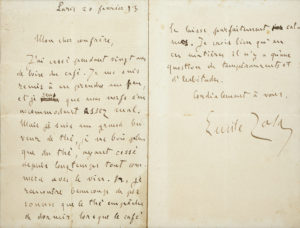 Paris 20 février 93
Mon cher confrère,
J'ai cessé pendant vingt ans
de boire du café. Je me suis
remis à en prendre un peu,
et je que mes nerfs s'en
accommodent assez mal.
Mais je suis un grand bu-
veur de thé, je ne bois plus
que du thé, ayant cessé
depuis longtemps tout com-
merce avec le vin. Or, je
rencontre beaucoup de per-
sonnes que le thé empêche
de dormir, lorsque le café
les laisse parfaitement cal-
mes. Je crois bien qu'en
ces matières il n'y a qu'une
question de tempérament et
d'habitude.
Cordialement à vous,
Emile Zola